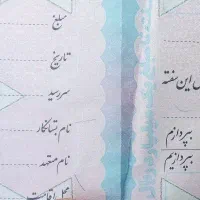 مبلغ
تاریخ
سررسید
نام بستانکار
نام متعهد
این سفته
بپردازم
بپردازیم